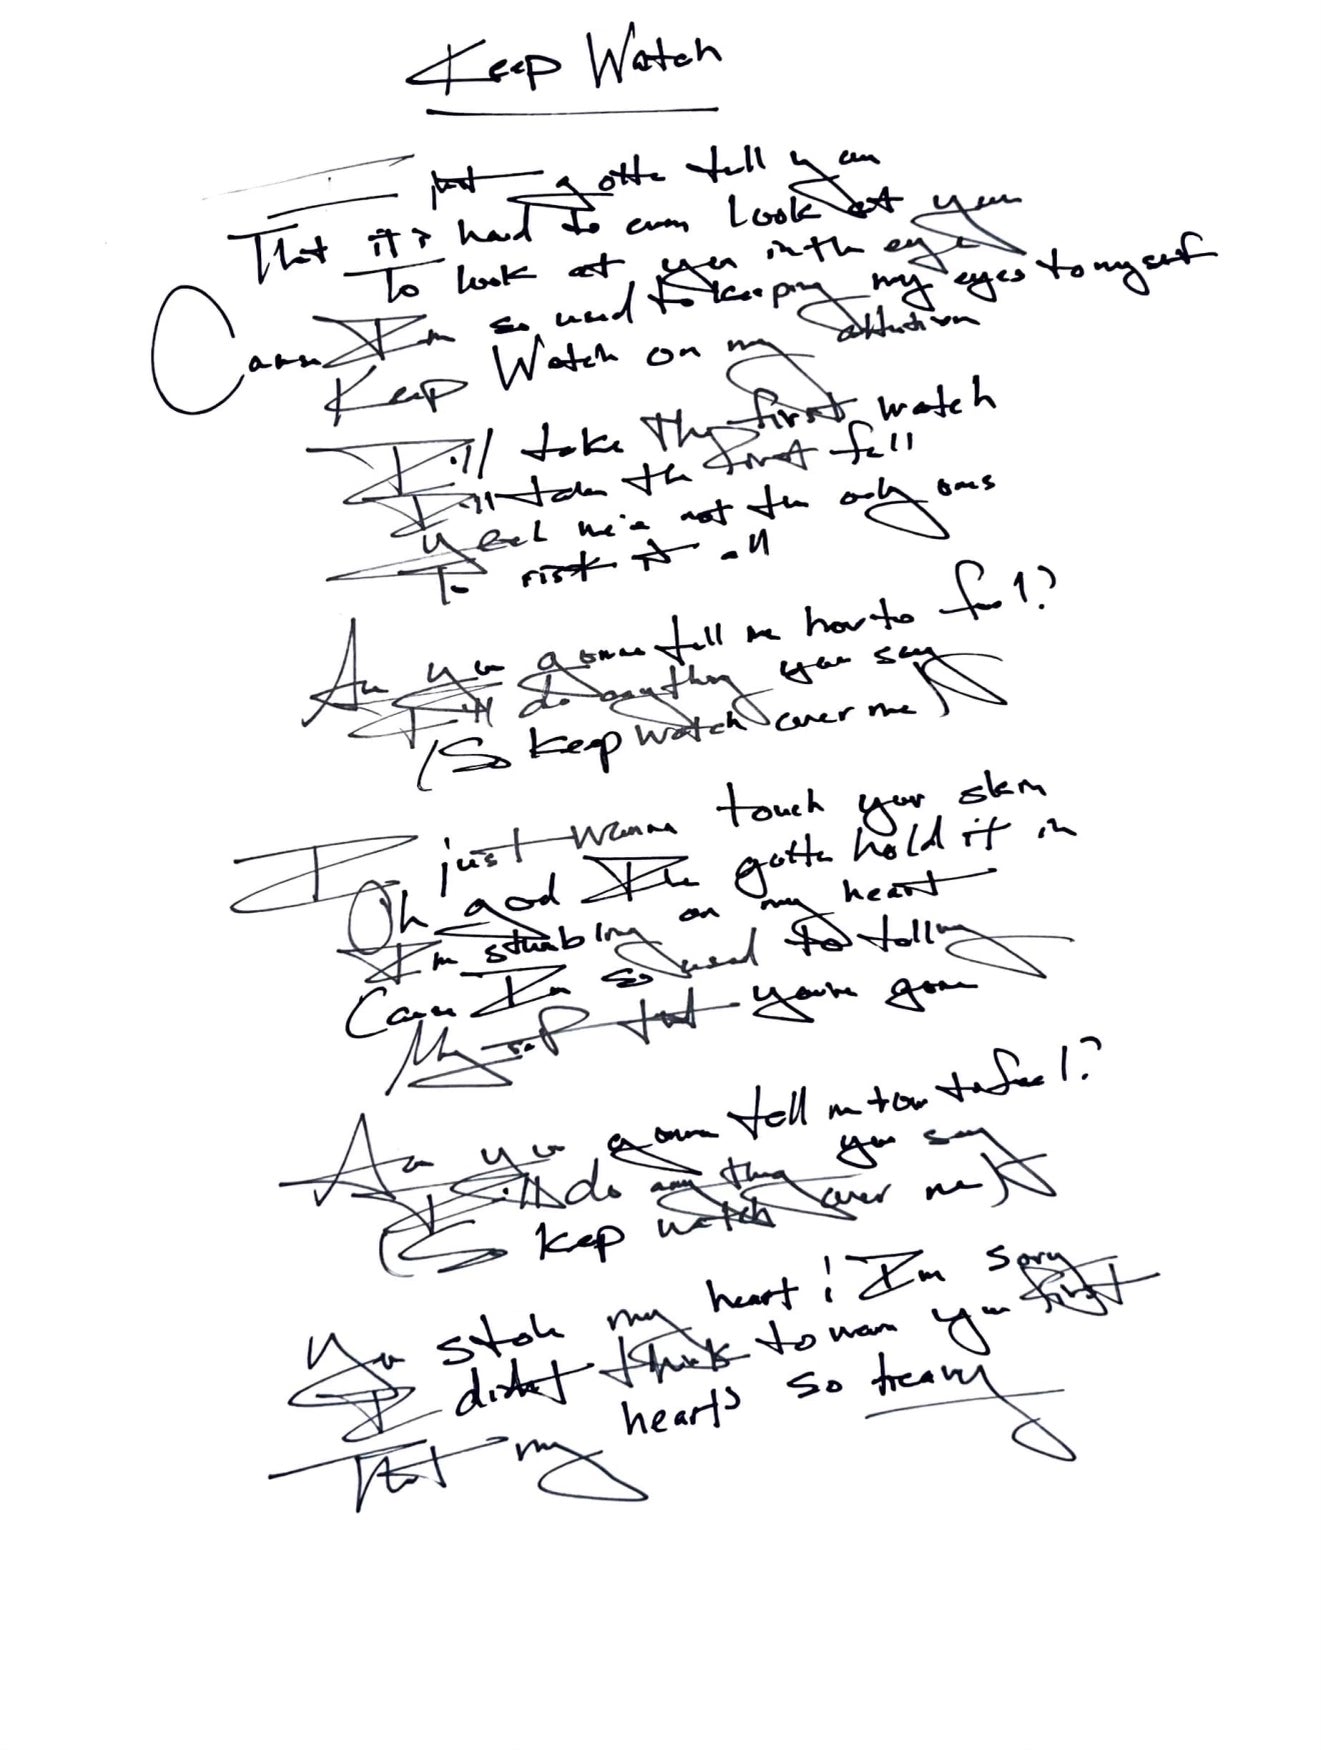 Keep Watch
I just gotta tell you
That it's hard to even look at you
To look at you in the eye
Cause I'm so used to keeping my eyes to myself
Keep Watch on my attention
I'll take the first watch
I'll take the first fall
Yeah we're not the only ones
To risk it all
Are you gonna tell me how to feel?
I'll do anything you say
(So keep watch over me)
I just wanna touch your skin
Oh god I've gotta hold it in
I'm stumbling on my heart
Cause I'm so used to telling
Myself that you're gone
Are you gonna tell me how to feel?
I'll do anything you say
(So keep watch over me)
You stole my heart! I'm sorry
I didn't think to warn you first
That my heart's so heavy